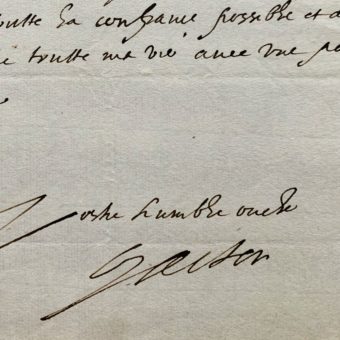 toutte la confiance possible et a
e toutte ma vie auec vne pa
Vostre humble oncle
Gaston